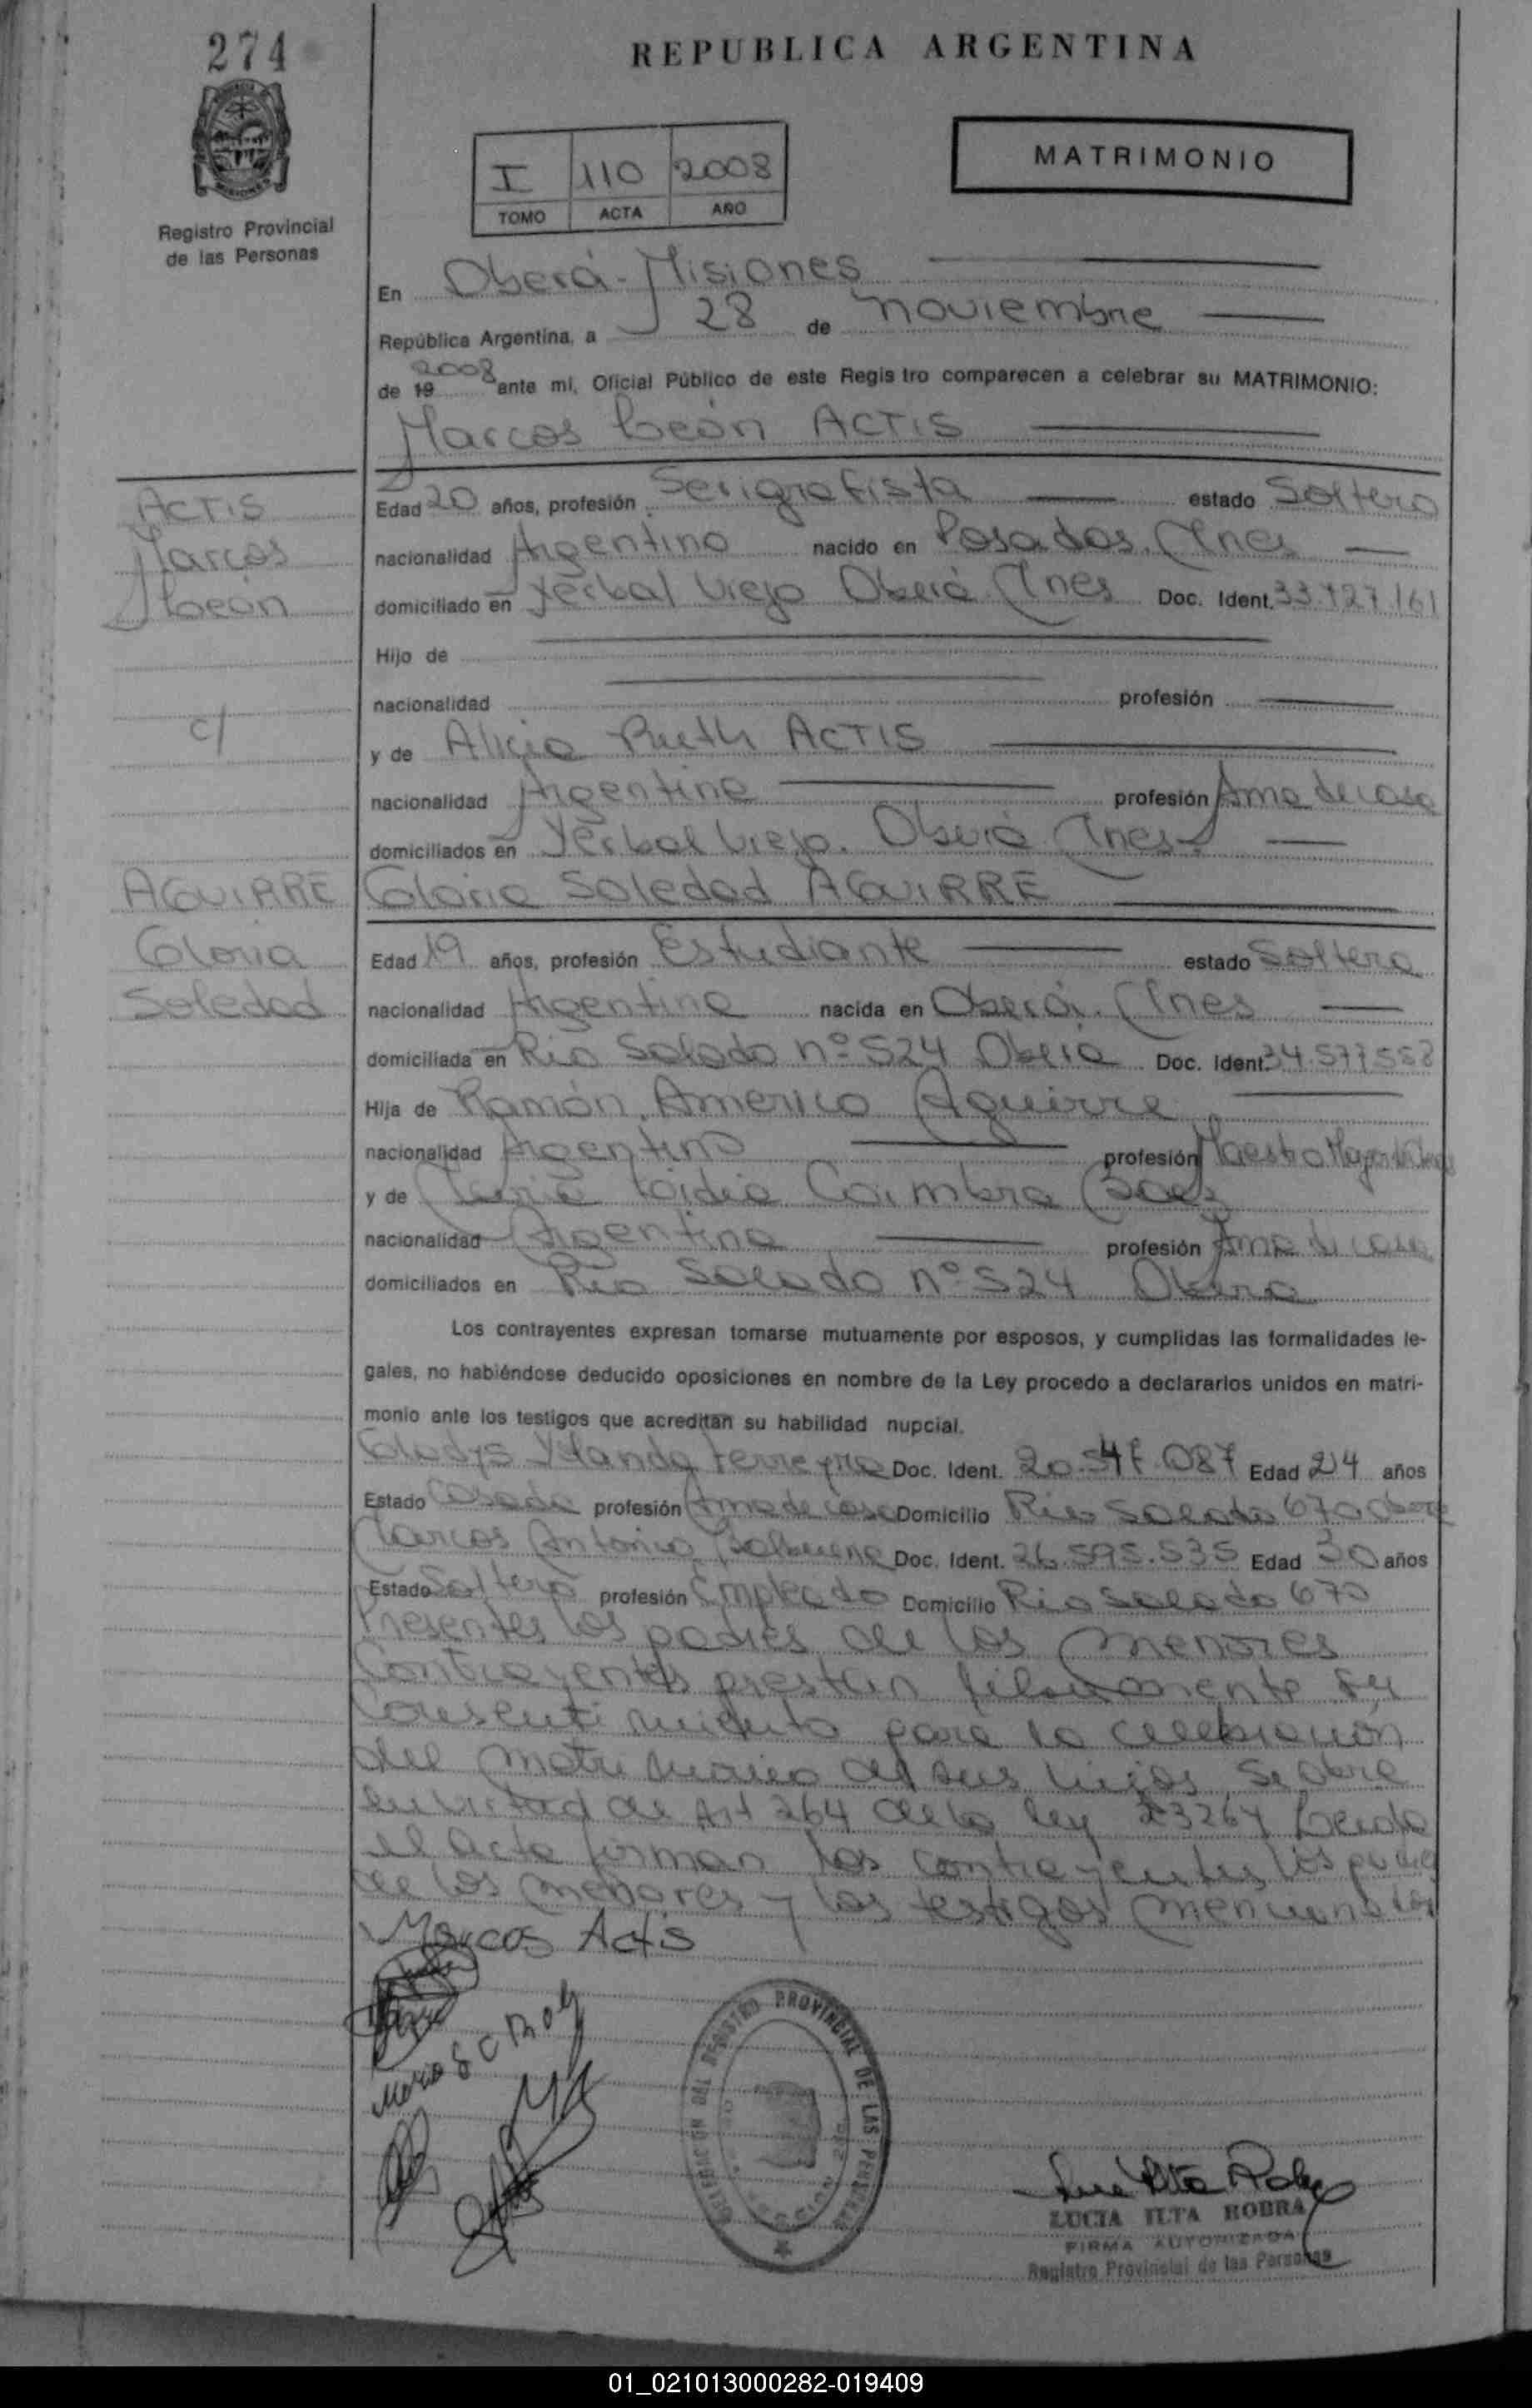 274
REPUBLICA ARGENTINA
Registro Provincial
de las Personas
I 110 2008
TOMO ACTA AÑO
MATRIMONIO
En Oberá - Misiones
República Argentina, a 28 de noviembre
de 19 2008 ante mi, Oficial Público de este Registro comparecen a celebrar su MATRIMONIO:
Marcos León ACTIS
ACTIS
Marcos
León
c/
AGUIRRE
Gloria
Soledad
Edad 20 años, profesión Serigrafista estado Soltero
nacionalidad Argentino nacido en Posadas. Mnes
domiciliado en Yerbal Viejo Oberá Mnes Doc. Ident. 161
Hijo de
nacionalidad profesión
y de Alicia Ruth ACTIS
nacionalidad Argentina profesión Ama de casa
domiciliados en Yerbal Viejo. Oberá Mnes.
Gloria Soledad AGUIRRE
Edad 19 años, profesión Estudiante estado Soltera
nacionalidad Argentina nacida en Oberá. Mnes
domiciliada en Rio Salado nº 524 Oberá Doc. Ident. 34.577558
Hija de Ramón Americo Aguirre
nacionalidad Argentino profesión Maestro Mayor
y de Maria Coimbra
nacionalidad Argentina profesión Ama de casa
domiciliados en Rio Salado nº 524 Obera
Los contrayentes expresan tomarse mutuamente por esposos, y cumplidas las formalidades le-
gales, no habiéndose deducido oposiciones en nombre de la Ley procedo a declararlos unidos en matri-
monio ante los testigos que acreditan su habilidad nupcial.
Gladys Yolanda Ferreyra Doc. Ident. Edad años
Estado Casada profesión Ama de casa Domicilio Rio Salado 670 Obera
Marcos Antonio Balbuena Doc. Ident. 26.595.535 Edad 30 años
Estado Soltero profesión Empleado Domicilio Rio Salado 670
Presentes los padres de los menores
Contrayentes prestan su
Consentimiento para la celebración
del matrimonio de sus hijos. Se obra
en virtud de Art 264 de la ley 23264 Leida
el acta firman los contrayentes, los padres
de los menores y los testigos mencionados
Marcos Actis
DELEGACION DEL REGISTRO PROVINCIAL DE LAS PERSONAS
LUCIA ILTA ROBRA
FIRMA AUTORIZADA
Registro Provincial de las Personas
01_021013000282-019409